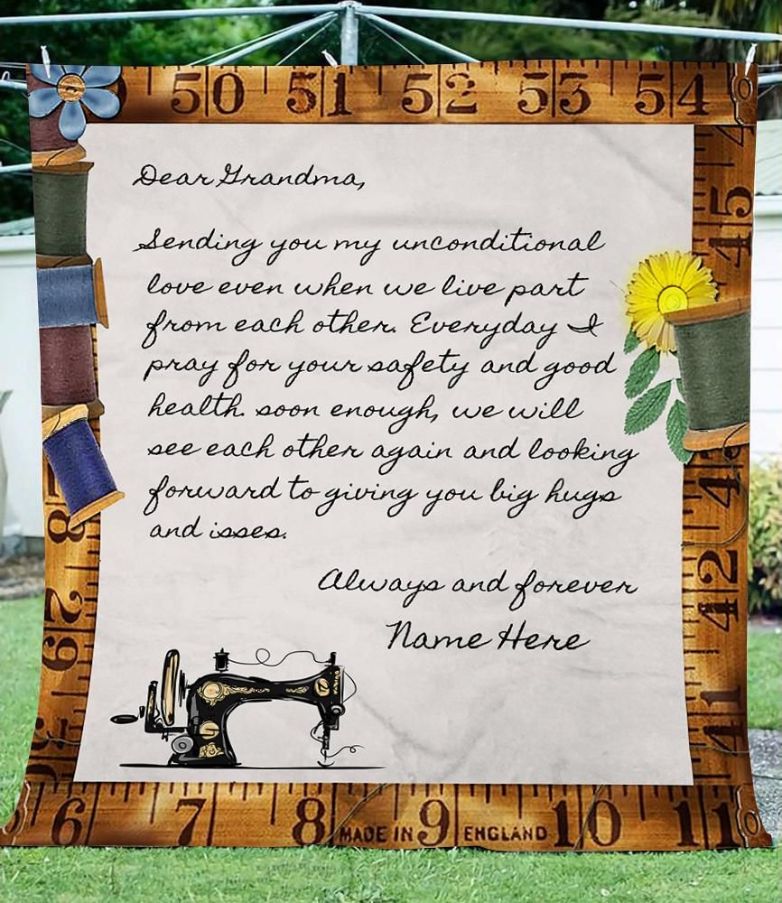 50 51 52 53 54
Dear Grandma,
Sending you my unconditional
love even when we live part
from each other. Everyday I
pray for your safety and good
health. soon enough, we will
see each other again and looking
forward to giving you big hugs
and isses.
Always and forever
Name Here
45
42
41
62
6 7 8 MADE IN 9 ENGLAND 10 11